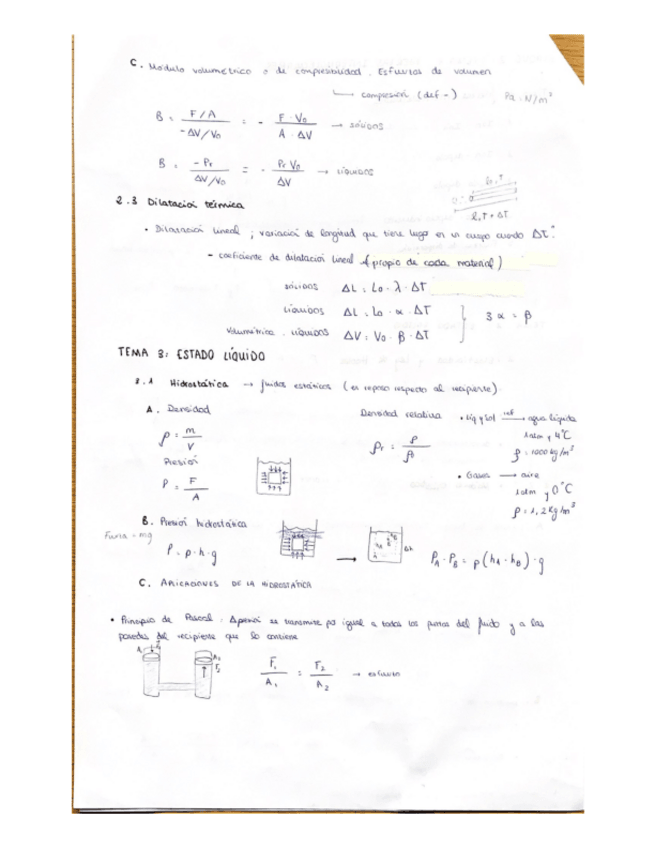 C. Módulo volumétrico o de compresibilidad. Esfuerzos de volumen
compresión (def -) Pa = N/m²
B = F/A / -ΔV/V₀ = - F·V₀ / A·ΔV → SÓLIDOS
B = -Pr / ΔV/V₀ = - Pr V₀ / ΔV → LÍQUIDOS
2.3 Dilatación térmica
l₀, T
l, T + ΔT
• Dilatación lineal ; variación de longitud que tiene lugar en un cuerpo cuando ΔT.
- coeficiente de dilatación lineal (propio de cada material)
SÓLIDOS ΔL = L₀ · λ · ΔT
LÍQUIDOS ΔL = L₀ · α · ΔT
3α = β
Volumétrica. LÍQUIDOS ΔV = V₀ · β · ΔT
TEMA 3: ESTADO LÍQUIDO
3.1 Hidrostática → fluidos estáticos (en reposo respecto al recipiente).
A. Densidad
ρ = m / V
Presión
P = F / A
Densidad relativa • Líq y sol ref → agua líquida
1 atm y 4°C
ρ = 1000 kg/m³
ρr = ρ / ρ₀
• Gases → aire
1 atm y 0°C
ρ = 1,2 kg/m³
B. Presión hidrostática
Fuerza = mg
P = ρ · h · g
→ hA hB A B Δh
PA - PB = ρ(hA - hB) · g
C. APLICACIONES DE LA HIDROSTÁTICA
• Principio de Pascal : Δ presión se transmite por igual a todos los puntos del fluido y a las
paredes del recipiente que lo contiene
A₁ F₁ A₂ F₂
F₁ / A₁ = F₂ / A₂ → esfuerzo